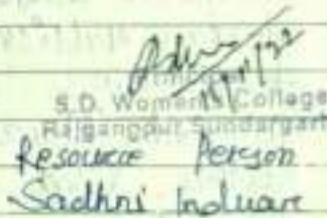 S.D. Women's College
Rajgangpur, Sundargarh
Resource Person
Sadhni Induar